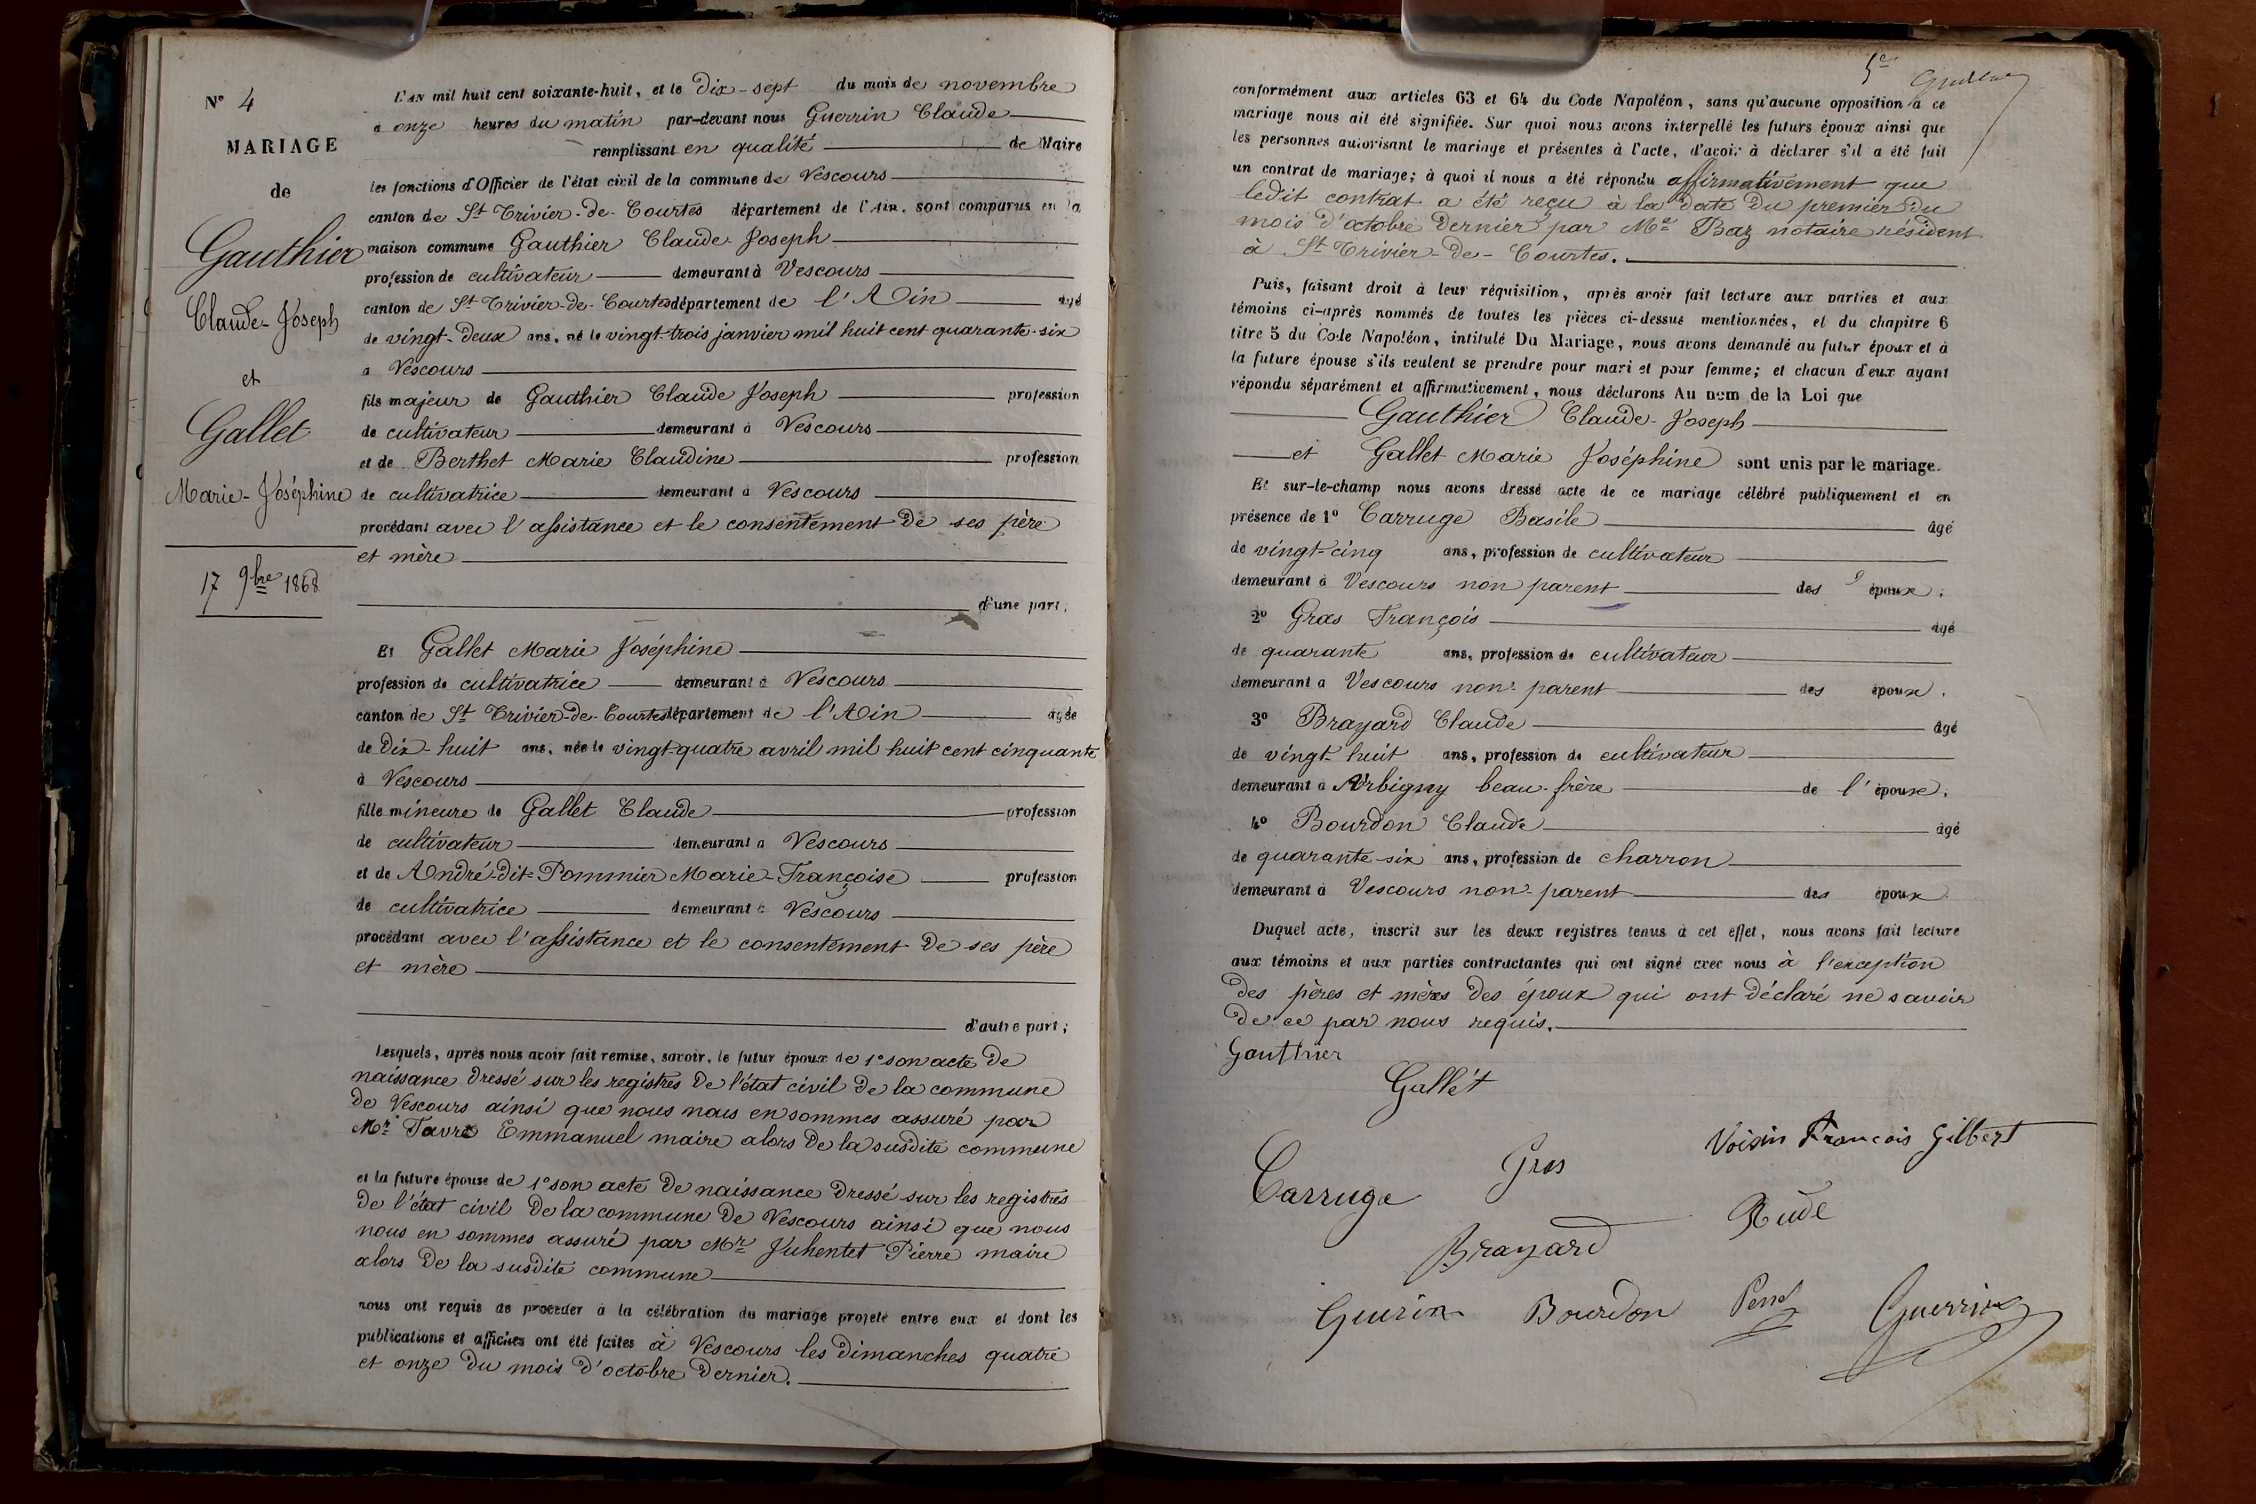 N° 4
MARIAGE
de
Gauthier
Claude-Joseph
et
Gallet
Marie-Joséphine
17 9bre 1868
L'AN mil huit cent soixante-huit, et le Dix-sept du mois de novembre
à onze heures du matin par-devant nous Guerrin Claude
remplissant en qualité de Maire
les fonctions d'Officier de l'état civil de la commune de Vescours
canton de St Trivier-de-Courtes département de l'Ain, sont comparus en la
maison commune Gauthier Claude Joseph
profession de cultivateur demeurant à Vescours
canton de St Trivier-de-Courtes département de l'Ain âgé
de vingt-deux ans, né le vingt-trois janvier mil huit cent quarante-six
à Vescours
fils majeur de Gauthier Claude Joseph profession
de cultivateur demeurant à Vescours
et de Berthet Marie Claudine profession
de cultivatrice demeurant à Vescours
procédant avec l'assistance et le consentement de ses père
et mère
d'une part;
Et Gallet Marie Joséphine
profession de cultivatrice demeurant à Vescours
canton de St Trivier-de-Courtes département de l'Ain âgée
de Dix-huit ans, née le vingt-quatre avril mil huit cent cinquante
à Vescours
fille mineure de Gallet Claude profession
de cultivateur demeurant à Vescours
et de André-dit-Pommier Marie-Françoise profession
de cultivatrice demeurant à Vescours
procédant avec l'assistance et le consentement de ses père
et mère
d'autre part;
Lesquels, après nous avoir fait remise, savoir, le futur époux de 1° son acte de
naissance dressé sur les registres de l'état civil de la commune
de Vescours ainsi que nous nous en sommes assuré par
Mr Favre Emmanuel maire alors de la susdite commune
et la future épouse de 1° son acte de naissance dressé sur les registres
de l'état civil de la commune de Vescours ainsi que nous
nous en sommes assuré par Mr Juhentet Pierre maire
alors de la susdite commune
nous ont requis de procéder à la célébration du mariage projeté entre eux et dont les
publications et affiches ont été faites à Vescours les dimanches quatre
et onze du mois d'octobre dernier.
5e
conformément aux articles 63 et 64 du Code Napoléon, sans qu'aucune opposition à ce
mariage nous ait été signifiée. Sur quoi nous avons interpellé les futurs époux ainsi que
les personnes autorisant le mariage et présentes à l'acte, d'avoir à déclarer s'il a été fait
un contrat de mariage; à quoi il nous a été répondu affirmativement que
ledit contrat a été reçu à la date du premier du
mois d'octobre dernier par Me Baz notaire résident
à St Trivier-de-Courtes.
Puis, faisant droit à leur réquisition, après avoir fait lecture aux parties et aux
témoins ci-après nommés de toutes les pièces ci-dessus mentionnées, et du chapitre 6
titre 5 du Code Napoléon, intitulé Du Mariage, nous avons demandé au futur époux et à
la future épouse s'ils veulent se prendre pour mari et pour femme; et chacun d'eux ayant
répondu séparément et affirmativement, nous déclarons Au nom de la Loi que
Gauthier Claude-Joseph
et Gallet Marie Joséphine sont unis par le mariage.
Et sur-le-champ nous avons dressé acte de ce mariage célébré publiquement et en
présence de 1° Carruge Basile âgé
de vingt-cinq ans, profession de cultivateur
demeurant à Vescours non parent des époux.
2° Gras François âgé
de quarante ans, profession de cultivateur
demeurant à Vescours non-parent des époux.
3° Brayard Claude âgé
de vingt-huit ans, profession de cultivateur
demeurant à Arbigny beau-frère de l'épouse.
4° Bourdon Claude âgé
de quarante-six ans, profession de charron
demeurant à Vescours non-parent des époux
Duquel acte, inscrit sur les deux registres tenus à cet effet, nous avons fait lecture
aux témoins et aux parties contractantes qui ont signé avec nous à l'exception
des pères et mères des époux qui ont déclaré ne savoir
de ce par nous requis.
Gauthier
Gallet
Voisin François Gilbert
Carruge
Gras
Rude
Brayard
Guerin
Bourdon
Guerrin